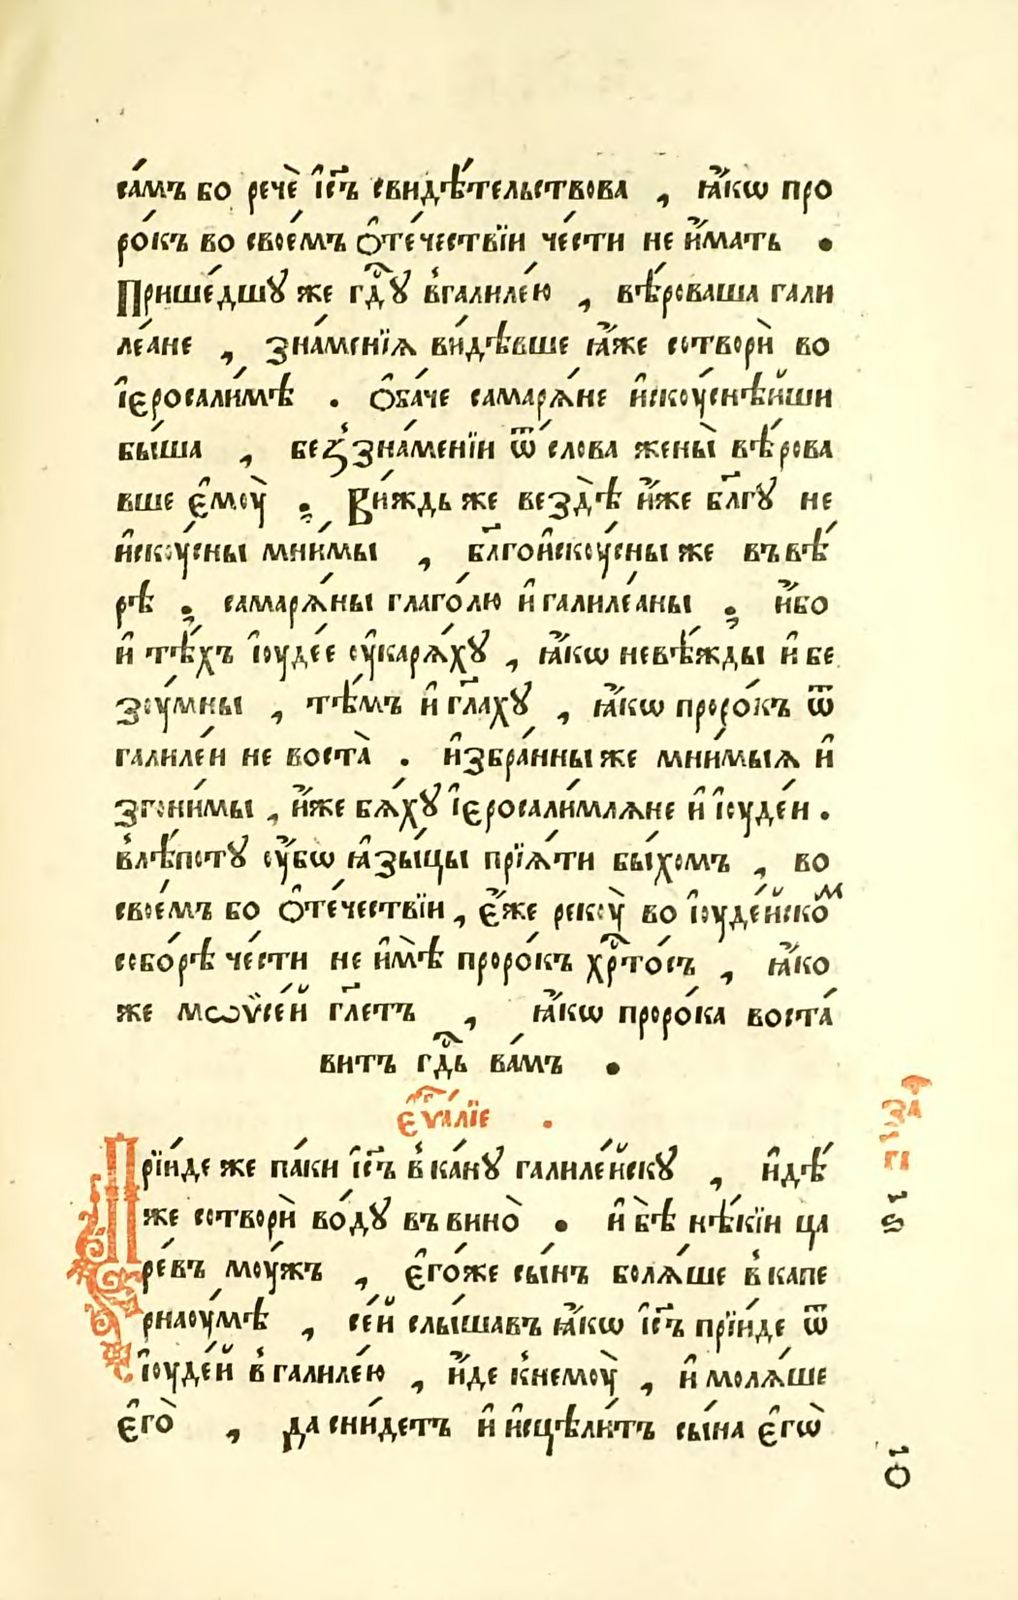 са́мъ бо речѐ і҆с҃ъ свидѣ́тельствова , ꙗ҆́кѡ про
ро́къ во свое́мъ ѻ҆те́чествїи че́сти не и҆́мать .
Прише́дшꙋ же гдⷭ҇ꙋ в҆галиле́ю , вѣ́роваша гали
ле́ане , зна́менїѧ ви́дѣвше ꙗ҆́же сотворѝ во
і҆єросали́мѣ . Ѻ҆ба́че самарѧ́не и҆скоу́снѣйши
бы́ша , беꙁзна́менїи ѿ сло́ва жены̀ вѣ́рова
вше є҆моу̀ . Ви́ждь же вездѣ̀ и҆́же бл҃гꙋ не
и҆скоу́сны мни́мы , бл҃гои҆скоу́сны же въ вѣ́
рѣ . самарѧ́ны глаго́лю и҆ галиле́аны . и҆́бо
и҆ тѣ́хъ і҆оуде́е оу҆карѧ́хꙋ , ꙗ҆́кѡ невѣ́жды и҆ бе
зоу́мны , тѣ́мъ и҆ гл҃ахꙋ , ꙗ҆́кѡ проро́къ ѿ
галиле́и не воста̀ . и҆збра́нны же мни́мыѧ и҆
згони́мы , и҆́же бѧ́хꙋ і҆єросали́млѧне и҆ і҆оуде́и .
в҆лѣ́потꙋ оу҆́бѡ ꙗ҆зы́цы прїѧ́ти бы́хомъ , во
свое́мъ бо ѻ҆те́чествїи , є҆́же рекоу̀ во і҆оуде́йскоⷨ
собо́рѣ че́сти не и҆мѣ̀ проро́къ хрⷭ҇то́съ , ꙗ҆́ко
же мѡѷсе́й гл҃етъ , ꙗ҆́кѡ проро́ка воста́
витъ гдⷭ҇ь ва́мъ .
є҆ѵⷢ҇а́лїе .
за
гі
Прїи́де же па́ки і҆с҃ъ в҆ ка́нꙋ галиле́йскꙋ , и҆дѣ́
же сотворѝ во́дꙋ въ вино̀ . и҆ бѣ̀ нѣ́кїи ца
ре́въ моу́жъ , є҆го́же сы́нъ болѧ́ше в҆ капе
рнаоу́мѣ , се́й слы́шавъ ꙗ҆́кѡ і҆с҃ъ прїи́де ѿ
і҆оуде́й в҆ галиле́ю , и҆́де к҆немоу̀ , и҆ молѧ́ше
є҆го̀ , да сни́детъ и҆ и҆сцѣли́тъ сы́на є҆гѡ̀